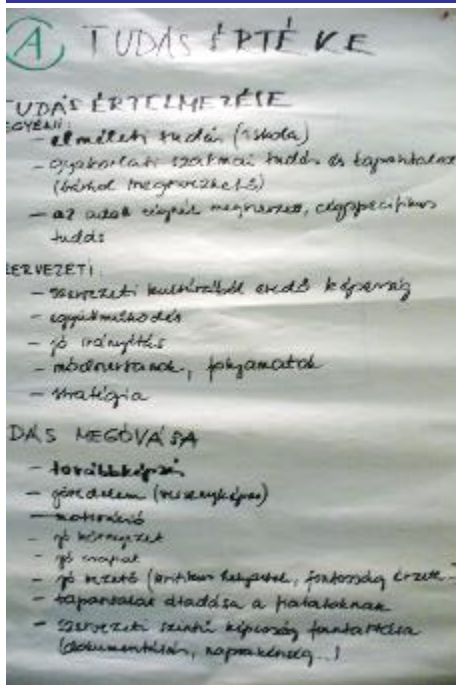 A TUDÁS ÉRTÉKE
TUDÁS ÉRTELMEZÉSE
EGYÉNI:
- elméleti tudás (iskola)
- gyakorlati szakmai tudás és tapasztalat
(bárhol megszerezhető)
- az adott cégnél megszerzett, cégspecifikus
tudás
SZERVEZETI:
- szervezeti kultúrából eredő képesség
- együttműködés
- jó irányítás
- módszertanok, folyamatok
- stratégia
DÁS MEGÓVÁSA
- továbbképzés
- jövedelem (versenyképes)
- motiváció
- jó környezet
- jó csapat
- jó vezető (kritikus helyzetek, fontosság érzete...)
- tapasztalat átadása a fiataloknak
- szervezeti szintű képesség fenntartása
(dokumentálás, naprakészség...)